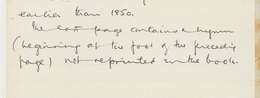 earlier than 1850.
The last page contains a hymn
(beginning at the foot of the preceding
page) not reprinted in the book.